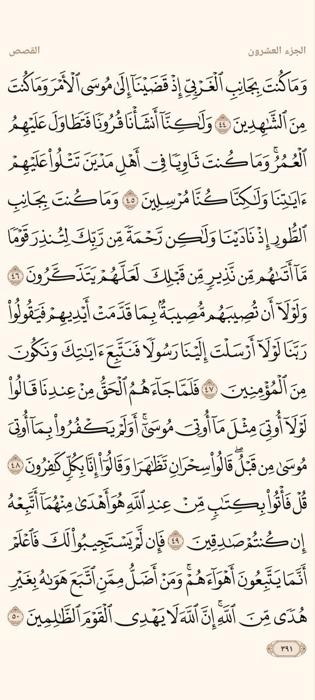 الجزء العشرون
القصص
وَمَا كُنتَ بِجَانِبِ ٱلْغَرْبِيِّ إِذْ قَضَيْنَآ إِلَىٰ مُوسَى ٱلْأَمْرَ وَمَا كُنتَ
مِنَ ٱلشَّٰهِدِينَ ٤٤ وَلَٰكِنَّآ أَنشَأْنَا قُرُونًا فَتَطَاوَلَ عَلَيْهِمُ
ٱلْعُمُرُ ۚ وَمَا كُنتَ ثَاوِيًا فِىٓ أَهْلِ مَدْيَنَ تَتْلُوا۟ عَلَيْهِمْ
ءَايَٰتِنَا وَلَٰكِنَّا كُنَّا مُرْسِلِينَ ٤٥ وَمَا كُنتَ بِجَانِبِ
ٱلطُّورِ إِذْ نَادَيْنَا وَلَٰكِن رَّحْمَةً مِّن رَّبِّكَ لِتُنذِرَ قَوْمًا
مَّآ أَتَىٰهُم مِّن نَّذِيرٍ مِّن قَبْلِكَ لَعَلَّهُمْ يَتَذَكَّرُونَ ٤٦
وَلَوْلَآ أَن تُصِيبَهُم مُّصِيبَةٌۢ بِمَا قَدَّمَتْ أَيْدِيهِمْ فَيَقُولُوا۟
رَبَّنَا لَوْلَآ أَرْسَلْتَ إِلَيْنَا رَسُولًا فَنَتَّبِعَ ءَايَٰتِكَ وَنَكُونَ
مِنَ ٱلْمُؤْمِنِينَ ٤٧ فَلَمَّا جَآءَهُمُ ٱلْحَقُّ مِنْ عِندِنَا قَالُوا۟
لَوْلَآ أُوتِىَ مِثْلَ مَآ أُوتِىَ مُوسَىٰٓ ۚ أَوَلَمْ يَكْفُرُوا۟ بِمَآ أُوتِىَ
مُوسَىٰ مِن قَبْلُ ۖ قَالُوا۟ سِحْرَانِ تَظَٰهَرَا وَقَالُوٓا۟ إِنَّا بِكُلٍّ كَٰفِرُونَ ٤٨
قُلْ فَأْتُوا۟ بِكِتَٰبٍ مِّنْ عِندِ ٱللَّهِ هُوَ أَهْدَىٰ مِنْهُمَآ أَتَّبِعْهُ
إِن كُنتُمْ صَٰدِقِينَ ٤٩ فَإِن لَّمْ يَسْتَجِيبُوا۟ لَكَ فَٱعْلَمْ
أَنَّمَا يَتَّبِعُونَ أَهْوَآءَهُمْ ۚ وَمَنْ أَضَلُّ مِمَّنِ ٱتَّبَعَ هَوَىٰهُ بِغَيْرِ
هُدًى مِّنَ ٱللَّهِ ۚ إِنَّ ٱللَّهَ لَا يَهْدِى ٱلْقَوْمَ ٱلظَّٰلِمِينَ ٥٠
٣٩١